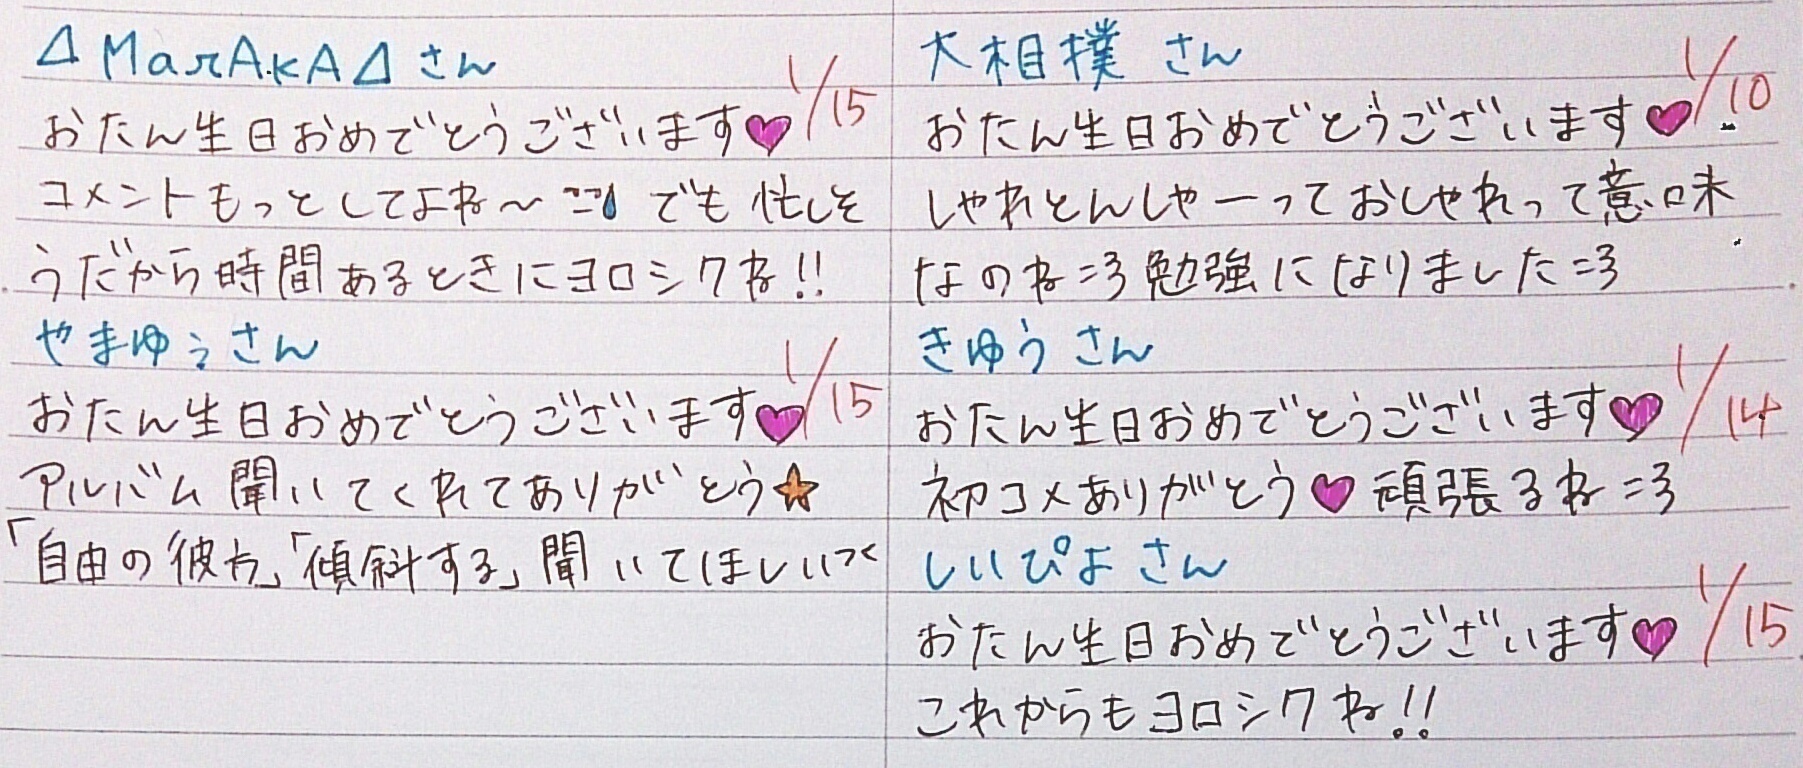 △MarAkA△さん
1/15
おたん生日おめでとうございます♥
コメントもっとしてよね〜 でも忙しそ
うだから時間あるときにヨロシクね!!
やまゆぅさん
1/15
おたん生日おめでとうございます♥
アルバム聞いてくれてありがとう☆
「自由の彼方」「傾斜する」聞いてほしいっく
大相撲さん
1/10
おたん生日おめでとうございます♥
しゃれとんしゃーっておしゃれって意味
なのね=3勉強になりました=3
きゆうさん
1/14
おたん生日おめでとうございます♥
初コメありがとう♥頑張るね=3
しいぴよさん
1/15
おたん生日おめでとうございます♥
これからもヨロシクね!!